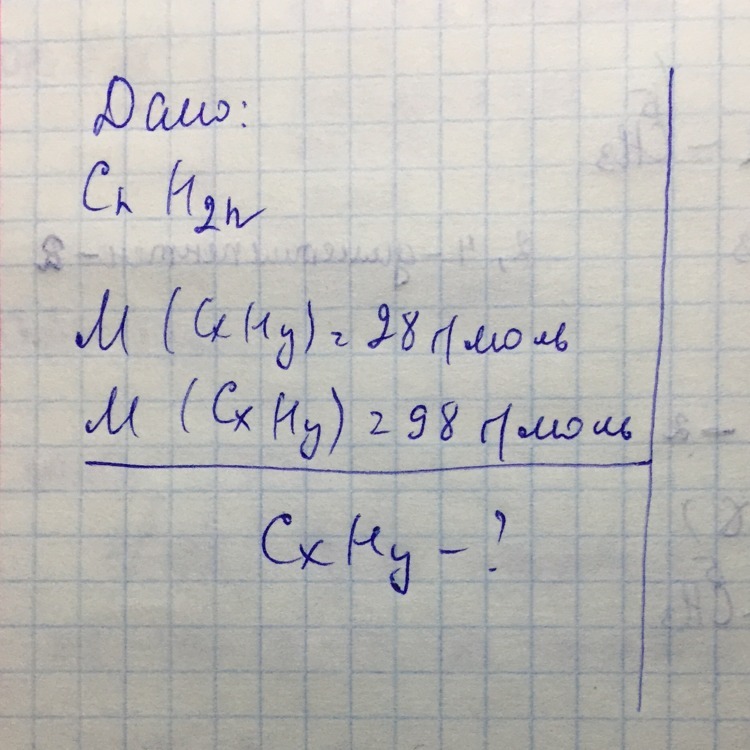 Дано:
CnH2n
M (CxHy) = 28 г/моль
M (CxHy) = 98 г/моль
CxHy - ?